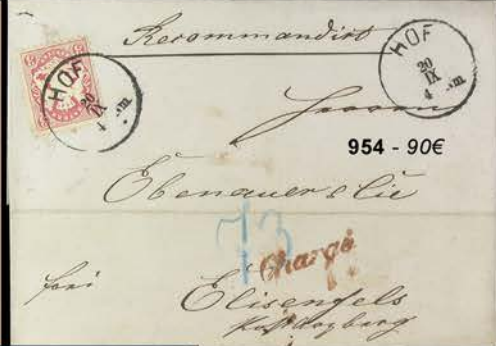 Recommandirt
HOF
20
IX
4 ... m
HOF
20
IX
4 ... m
Herren
954 - 90€
Ebenauer & Cie
73
Chargé
frei
Elisenfels